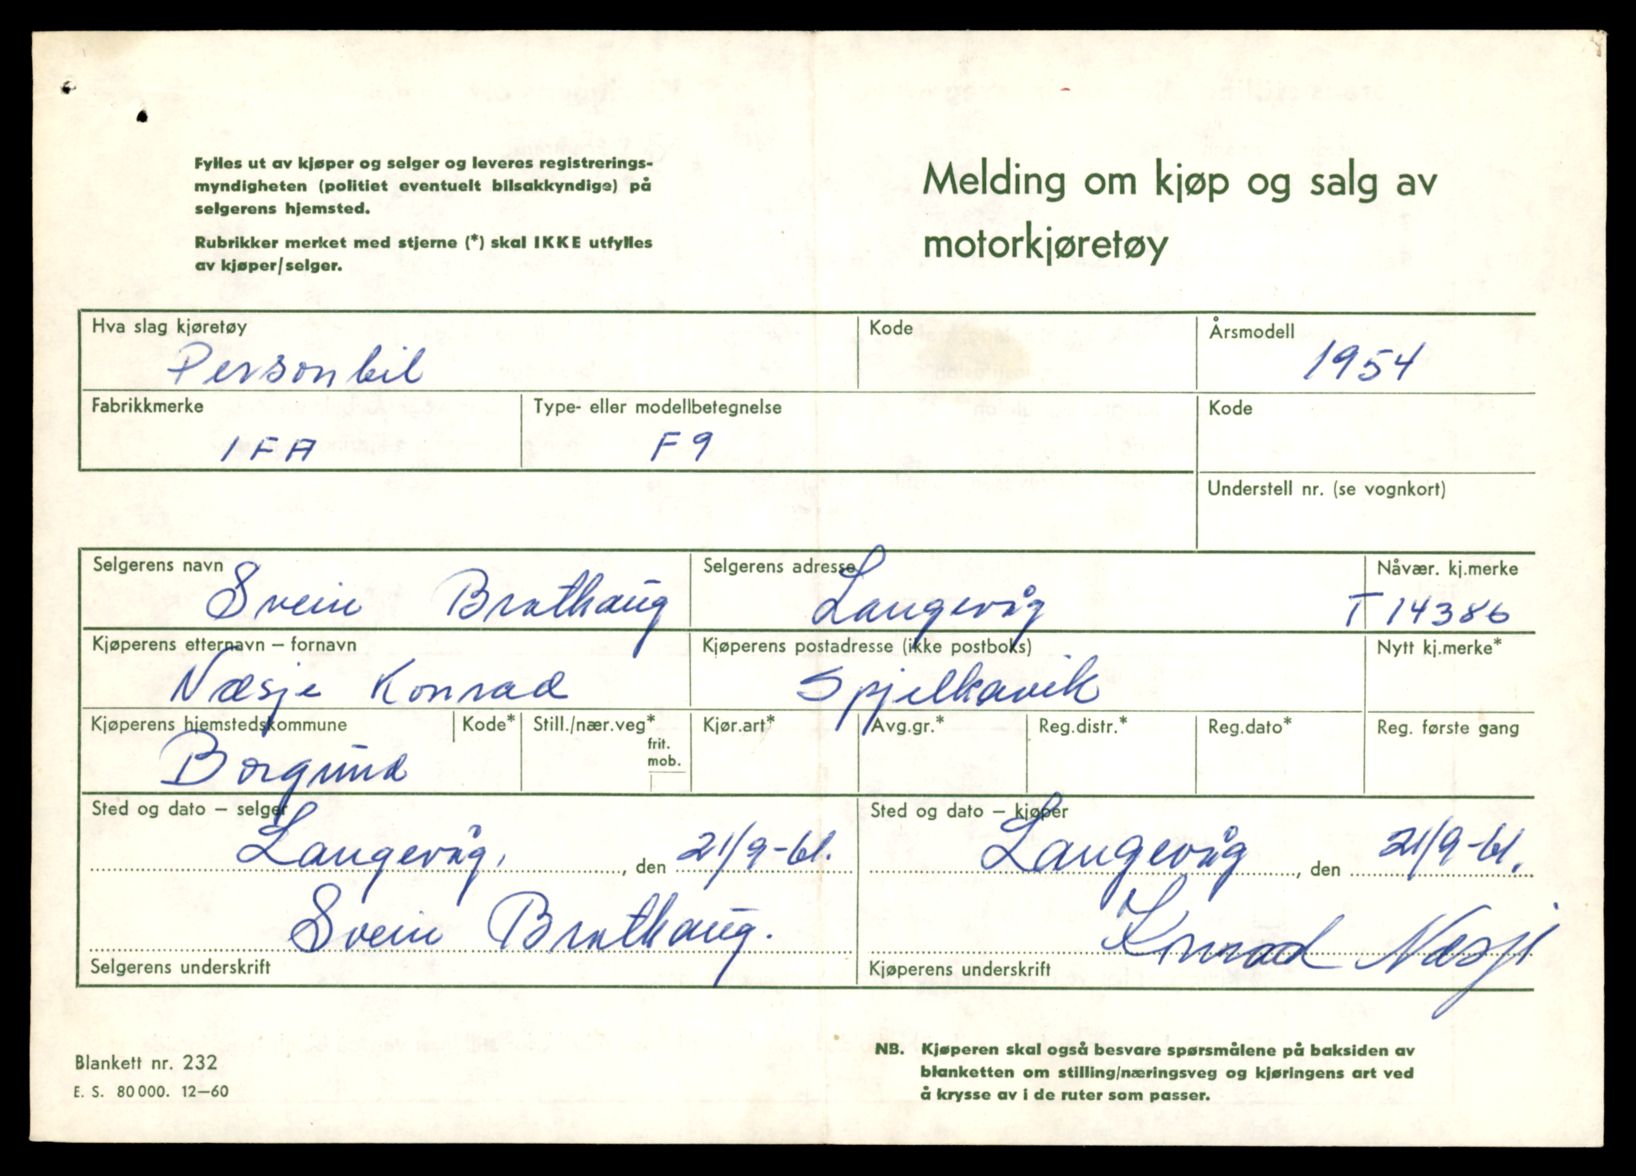 Fylles ut av kjøper og selger og leveres registrerings-
myndigheten (politiet eventuelt bilsakkyndige) på
selgerens hjemsted.
Rubrikker merket med stjerne (*) skal IKKE utfylles
av kjøper/selger.
Melding om kjøp og salg av
motorkjøretøy
Hva slag kjøretøy
Personbil
Kode
Årsmodell
1954
Fabrikkmerke
IFA
Type- eller modellbetegnelse
F9
Kode
Understell nr. (se vognkort)
Selgerens navn
Svein Brathaug
Selgerens adresse
Langevåg
Nåvær. kj.merke
T 14386
Kjøperens etternavn – fornavn
Næsje Konrad
Kjøperens postadresse (ikke postboks)
Spjelkavik
Nytt kj.merke*
Kjøperens hjemstedskommune
Borgund
Kode*
Still./nær.veg*
frit.
mob.
Kjør.art*
Avg.gr.*
Reg.distr.*
Reg.dato*
Reg. første gang
Sted og dato – selger
Langevåg, , den 21/9-61.
Svein Brathaug.
Selgerens underskrift
Sted og dato – kjøper
Langevåg , den 21/9-61.
Konrad Næsje
Kjøperens underskrift
Blankett nr. 232
E. S. 80 000. 12–60
NB. Kjøperen skal også besvare spørsmålene på baksiden av
blanketten om stilling/næringsveg og kjøringens art ved
å krysse av i de ruter som passer.